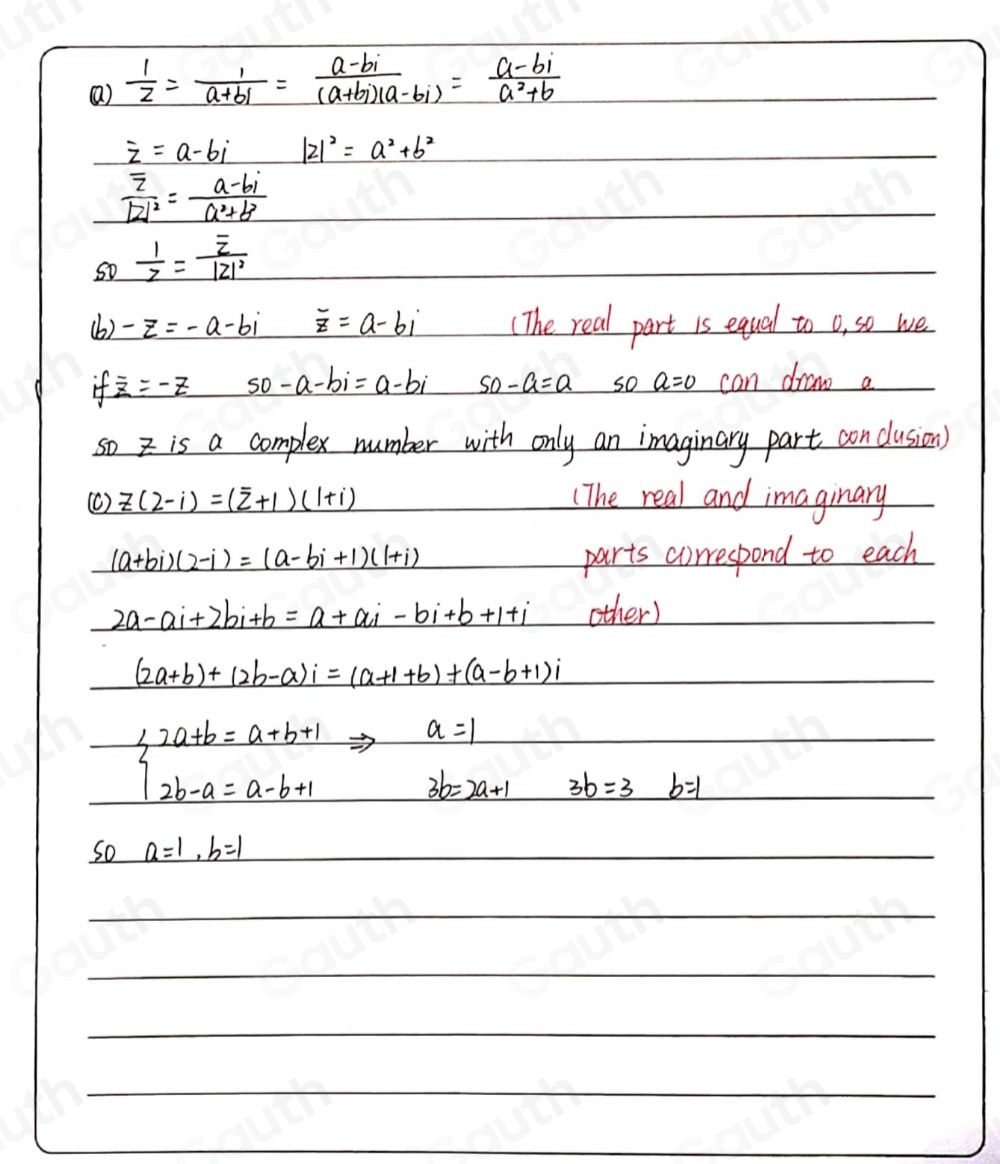 (a) 1/z = 1/(a+bi) = (a-bi)/((a+bi)(a-bi)) = (a-bi)/(a²+b)
z̄ = a-bi |z|² = a²+b²
z̄/|z|² = (a-bi)/(a²+b²)
so 1/z = z̄/|z|²
(b) -z = -a-bi z̄ = a-bi (The real part is equal to 0, so we
if z̄ = -z so -a-bi = a-bi so -a=a so a=0 can draw a
so z is a complex number with only an imaginary part conclusion)
(c) z(2-i) = (z̄+1)(1+i) (The real and imaginary
(a+bi)(2-i) = (a-bi+1)(1+i) parts correspond to each
2a-ai+2bi+b = a+ai-bi+b+1+i other)
(2a+b)+(2b-a)i = (a+1+b)+(a-b+1)i
{ 2a+b = a+b+1 ⇒ a=1
2b-a = a-b+1 3b=2a+1 3b=3 b=1
so a=1, b=1